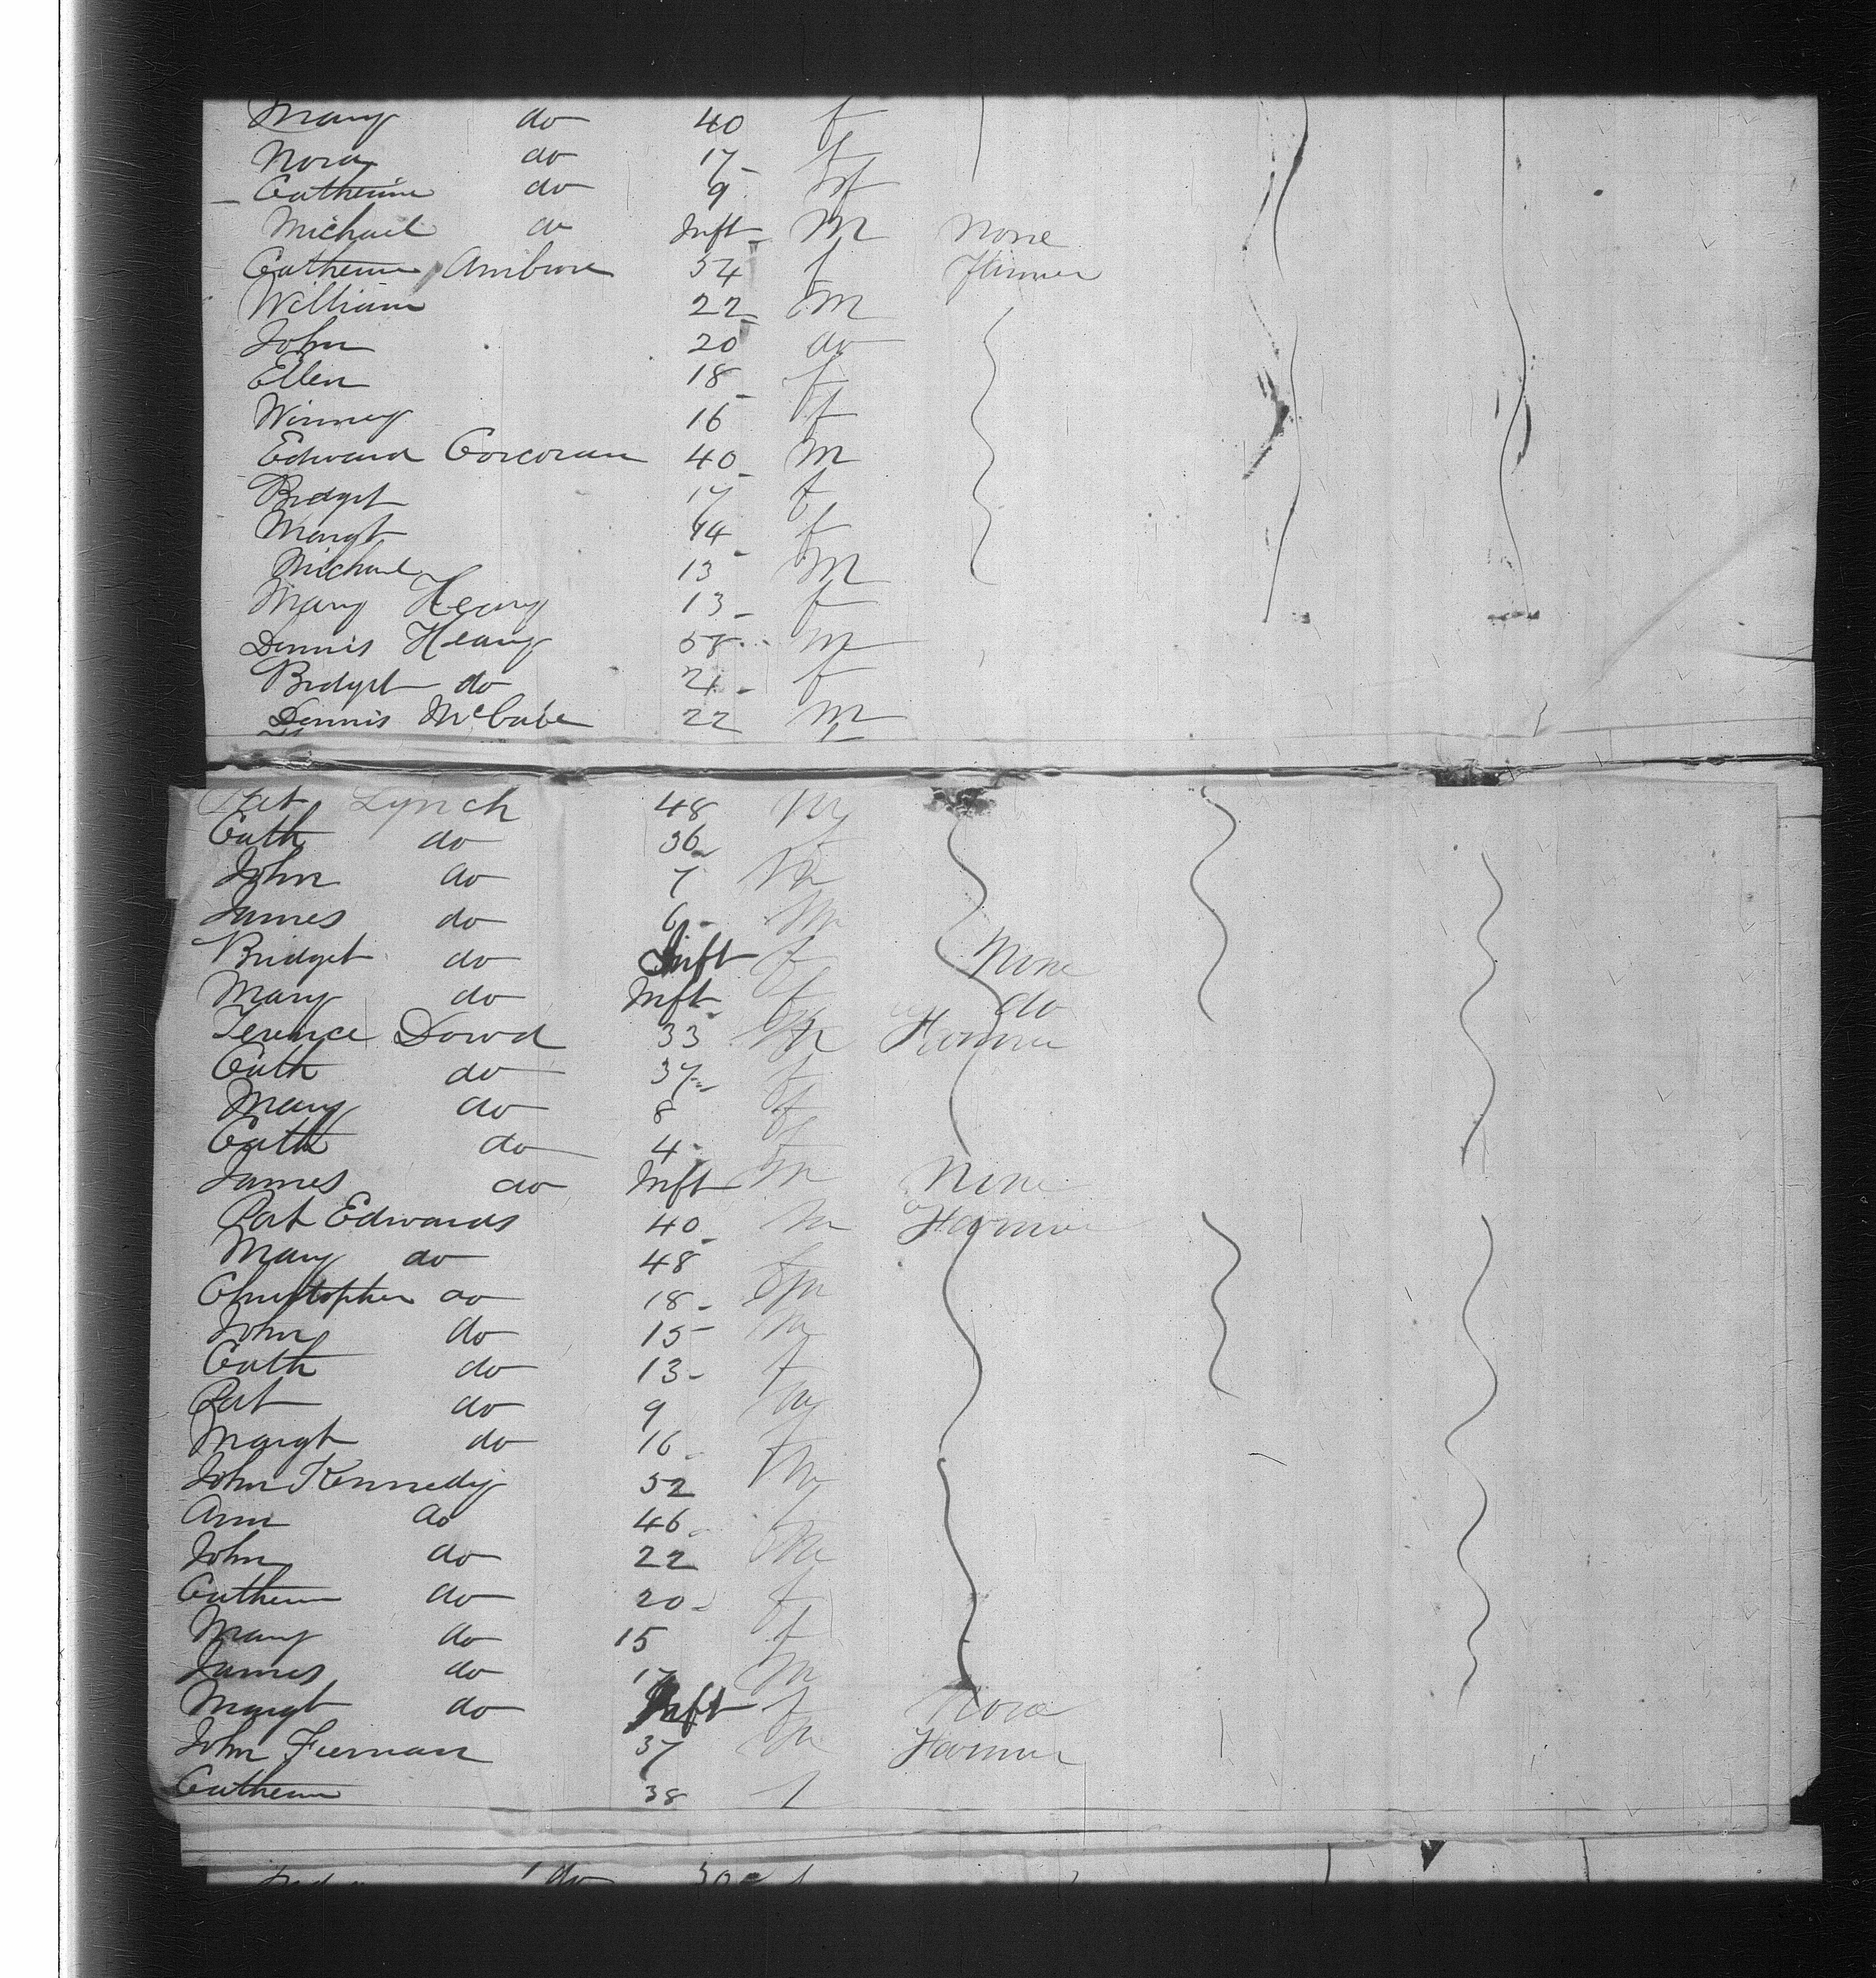 Mary do 40 f
Nora do 17 f
Catherine do 9 f
Michael do Inft M None
Catherine Ambrose 54 f Farmer
William 22 M
John 20 do
Ellen 18 f
Winney 16 f
Edward Corcoran 40 M
Bridget 17 f
Margt 14 f
Michael 13 M
Mary Heany 13 f
Dennis Heany 58 M
Bridget do 21 f
Dennis McCabe 22 M
Pat Lynch 48 M
Cath do 36 f
John do 7 M
James do 6 M
Bridget do Inft f None
Mary do Inft f do
Terence Dowd 33 M Farmer
Cath do 37 f
Mary do 8 f
Cath do 4 f
James do Inft M None
Pat Edwards 40 M Farmer
Mary do 48 f
Christopher do 18 m
John do 15 m
Cath do 13 f
Pat do 9 m
Margt do 16 f
John Kennedy 52 M
Ann do 46 f
John do 22 M
Cathern do 20 f
Mary do 15 f
James do 17 M
Margt do Inft f None
John Fiernan 37 M Farmer
Cathern 38 f
do 30 f